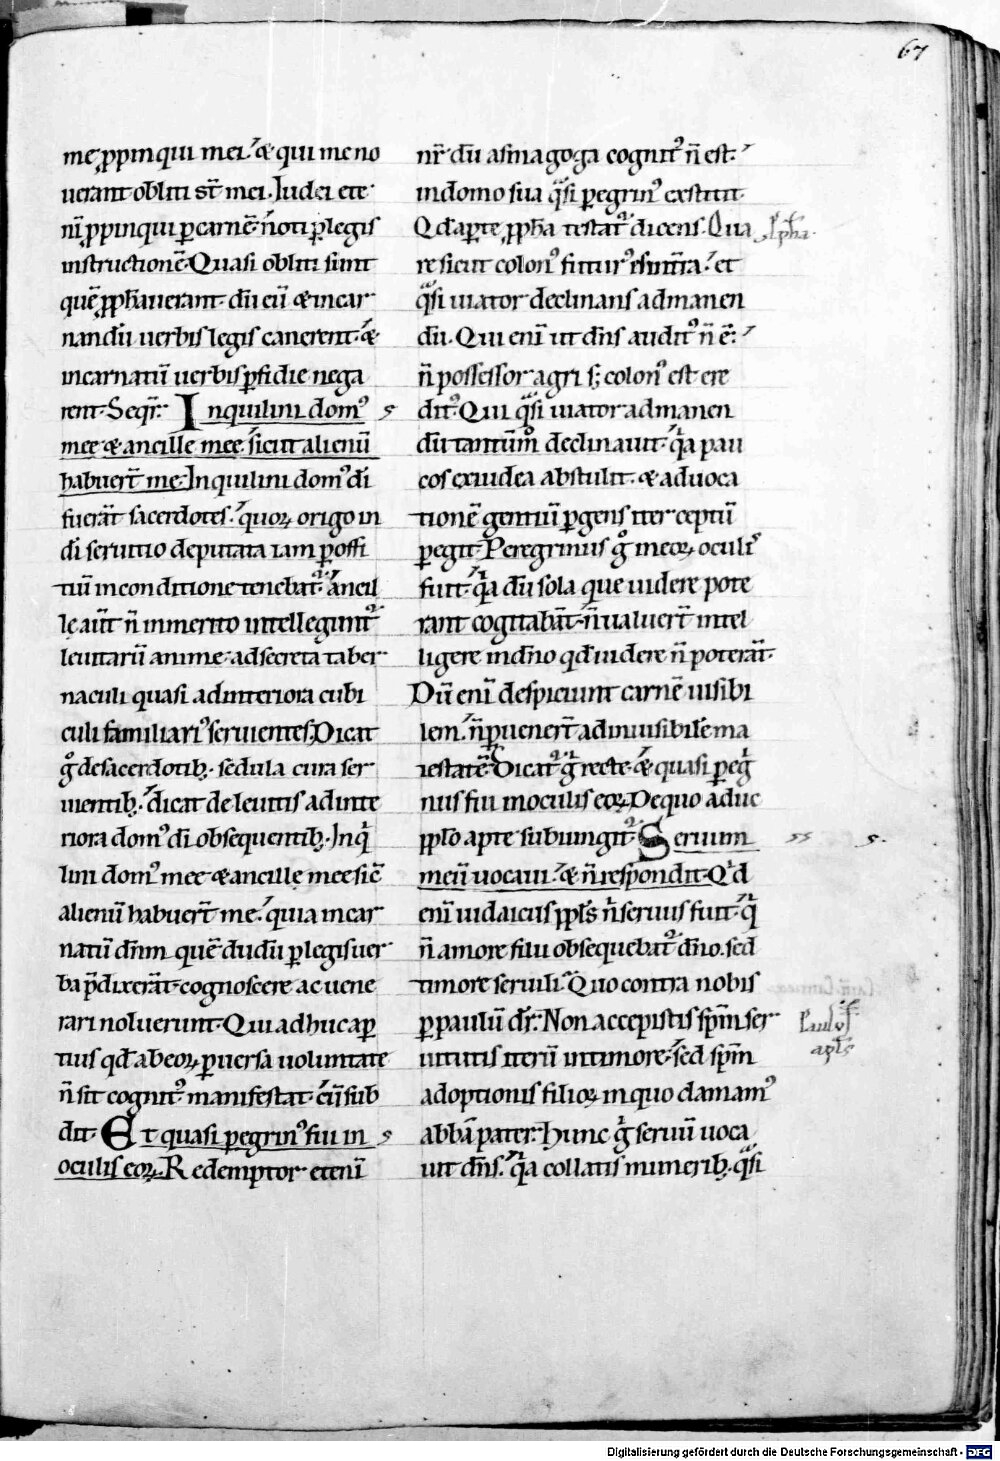 67
me ꝓpinqui mei. & qui me no
uerant obliti st̄ mei. Iudei ete
nī ꝓpinqui ꝑ carnē. noti ꝑ legis
instructionē. Quasi obliti sunt
quē ꝓphauerant. dū eū & incar
nandū uerbis legis canerent. &
incarnatū uerbis ꝑfidie nega
rent. Seqr̄. Inquilini domꝰ
mee & ancille mee. sicut alienū
habuer̄t me. Inquilini domꝰ di
fuerāt sacerdotes. quoꝝ origo in
di seruitio deputata iam ꝑ offi
tiū in conditione tenebat᷑. Ancil
lę aūt n̄ inmerito intelligunt᷑
leuitarū anime. ad secreta taber
naculi quasi ad interiora cubi
culi familiariꝰ seruientes. Dicat
g̊ de sacerdotibꝫ. sedula cura ser
uientibꝫ. dicat de leuitis ad inte
riora domꝰ di obsequentibꝫ. Inqͥ
lini domꝰ mee & ancille mee sic̄
alienū habuer̄t me. quia incar
natū dn̄m quē dudū ꝑ legis uer
ba p̄dixerāt. cognoscere ac uene
rari noluerunt. Qui adhuc aꝑ
tius qd̄ ab eoꝝ ꝑuersa uoluntate
n̄ sit cognitꝰ manifestat. cū sub
dit. Et quasi peregrinꝰ fui in
oculis eoꝝ. Redemptor etenī
nr̄ dū a sinagoga cognitꝰ n̄ est.
in domo sua qͣsi peregrinꝰ exstitit.
Qd̄ aperte ꝓpha testat᷑ dicens. Qua
re sicut colonꝰ futurꝰ es in tr̄a. et
qͣsi uiator declinans ad manen
dū. Qui enī ut dn̄s auditꝰ n̄ ē.
n̄ possessor agri sꝫ colonꝰ est cre
ditꝰ. Qui qͣsi uiator ad manen
dū tantūm̊ declinauit. qͥa pau
cos ex iudea abstulit. & ad uoca
tionē gentiū ꝑgens iter ceptū
peregit. Peregrinus g̊ in eoꝝ oculiˢ
fuit. qͥa dū sola que uidere pote
rant cogitabāt. n̄ ualuer̄t intel
ligere in dn̄o qd̄ uidere n̄ poterāt.
Dū enī despiciunt carnē uisibi
lem. n̄ ꝑuener̄t ad inuisibilē ma
iestatē. Dicat᷑ g̊ recte. & quasi peregͥ
nus fui in oculis eoꝝ. De quo adhuc
pp̄lo apte subiungit᷑. Seruum
meū uocaui. & n̄ respondit. Qͥd
enī iudaicus pp̄ls n̄ seruus fuit. qͥ
n̄ amore filii obsequebat᷑ dn̄o. sed
timore seruili. Quo contra nobis
ꝑ paulū dr̄. Non accepistis sp̄m ser
uitutis iterū in timore. sed sp̄m
adoptionis filioꝝ in quo clamamꝰ
abbā pater. Hunc g̊ seruū uoca
uit dn̄s. qͥa collatis muneribꝫ. qͣsi
Paulꝰ
apl̄s
Digitalisierung gefördert durch die Deutsche Forschungsgemeinschaft - DFG